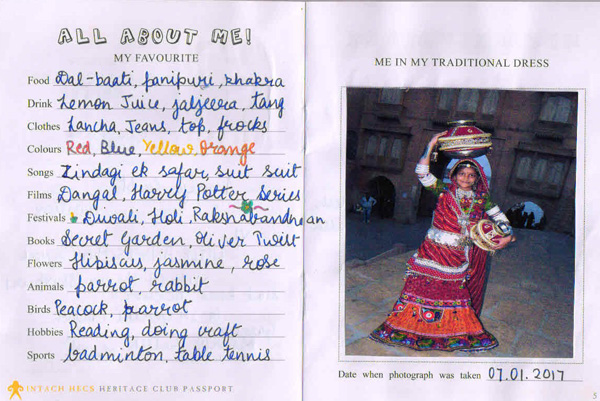 ALL ABOUT ME!
MY FAVOURITE
Food Dal-baati, panipuri, khakra
Drink Lemon Juice, jaljeera, tang
Clothes Lancha, Jeans, top, frocks
Colours Red, Blue, Yellow, Orange
Songs Zindagi ek safar, suit suit
Films Dangal, Harry Potter series
Festivals Diwali, Holi, Rakshabandhean
Books Secret Garden, Oliver Twist
Flowers Hibiscus, jasmine, rose
Animals parrot, rabbit
Birds Peacock, parrot
Hobbies Reading, doing craft
Sports badminton, table tennis
INTACH HECS HERITAGE CLUB PASSPORT
ME IN MY TRADITIONAL DRESS
Date when photograph was taken 07.01.2017
5